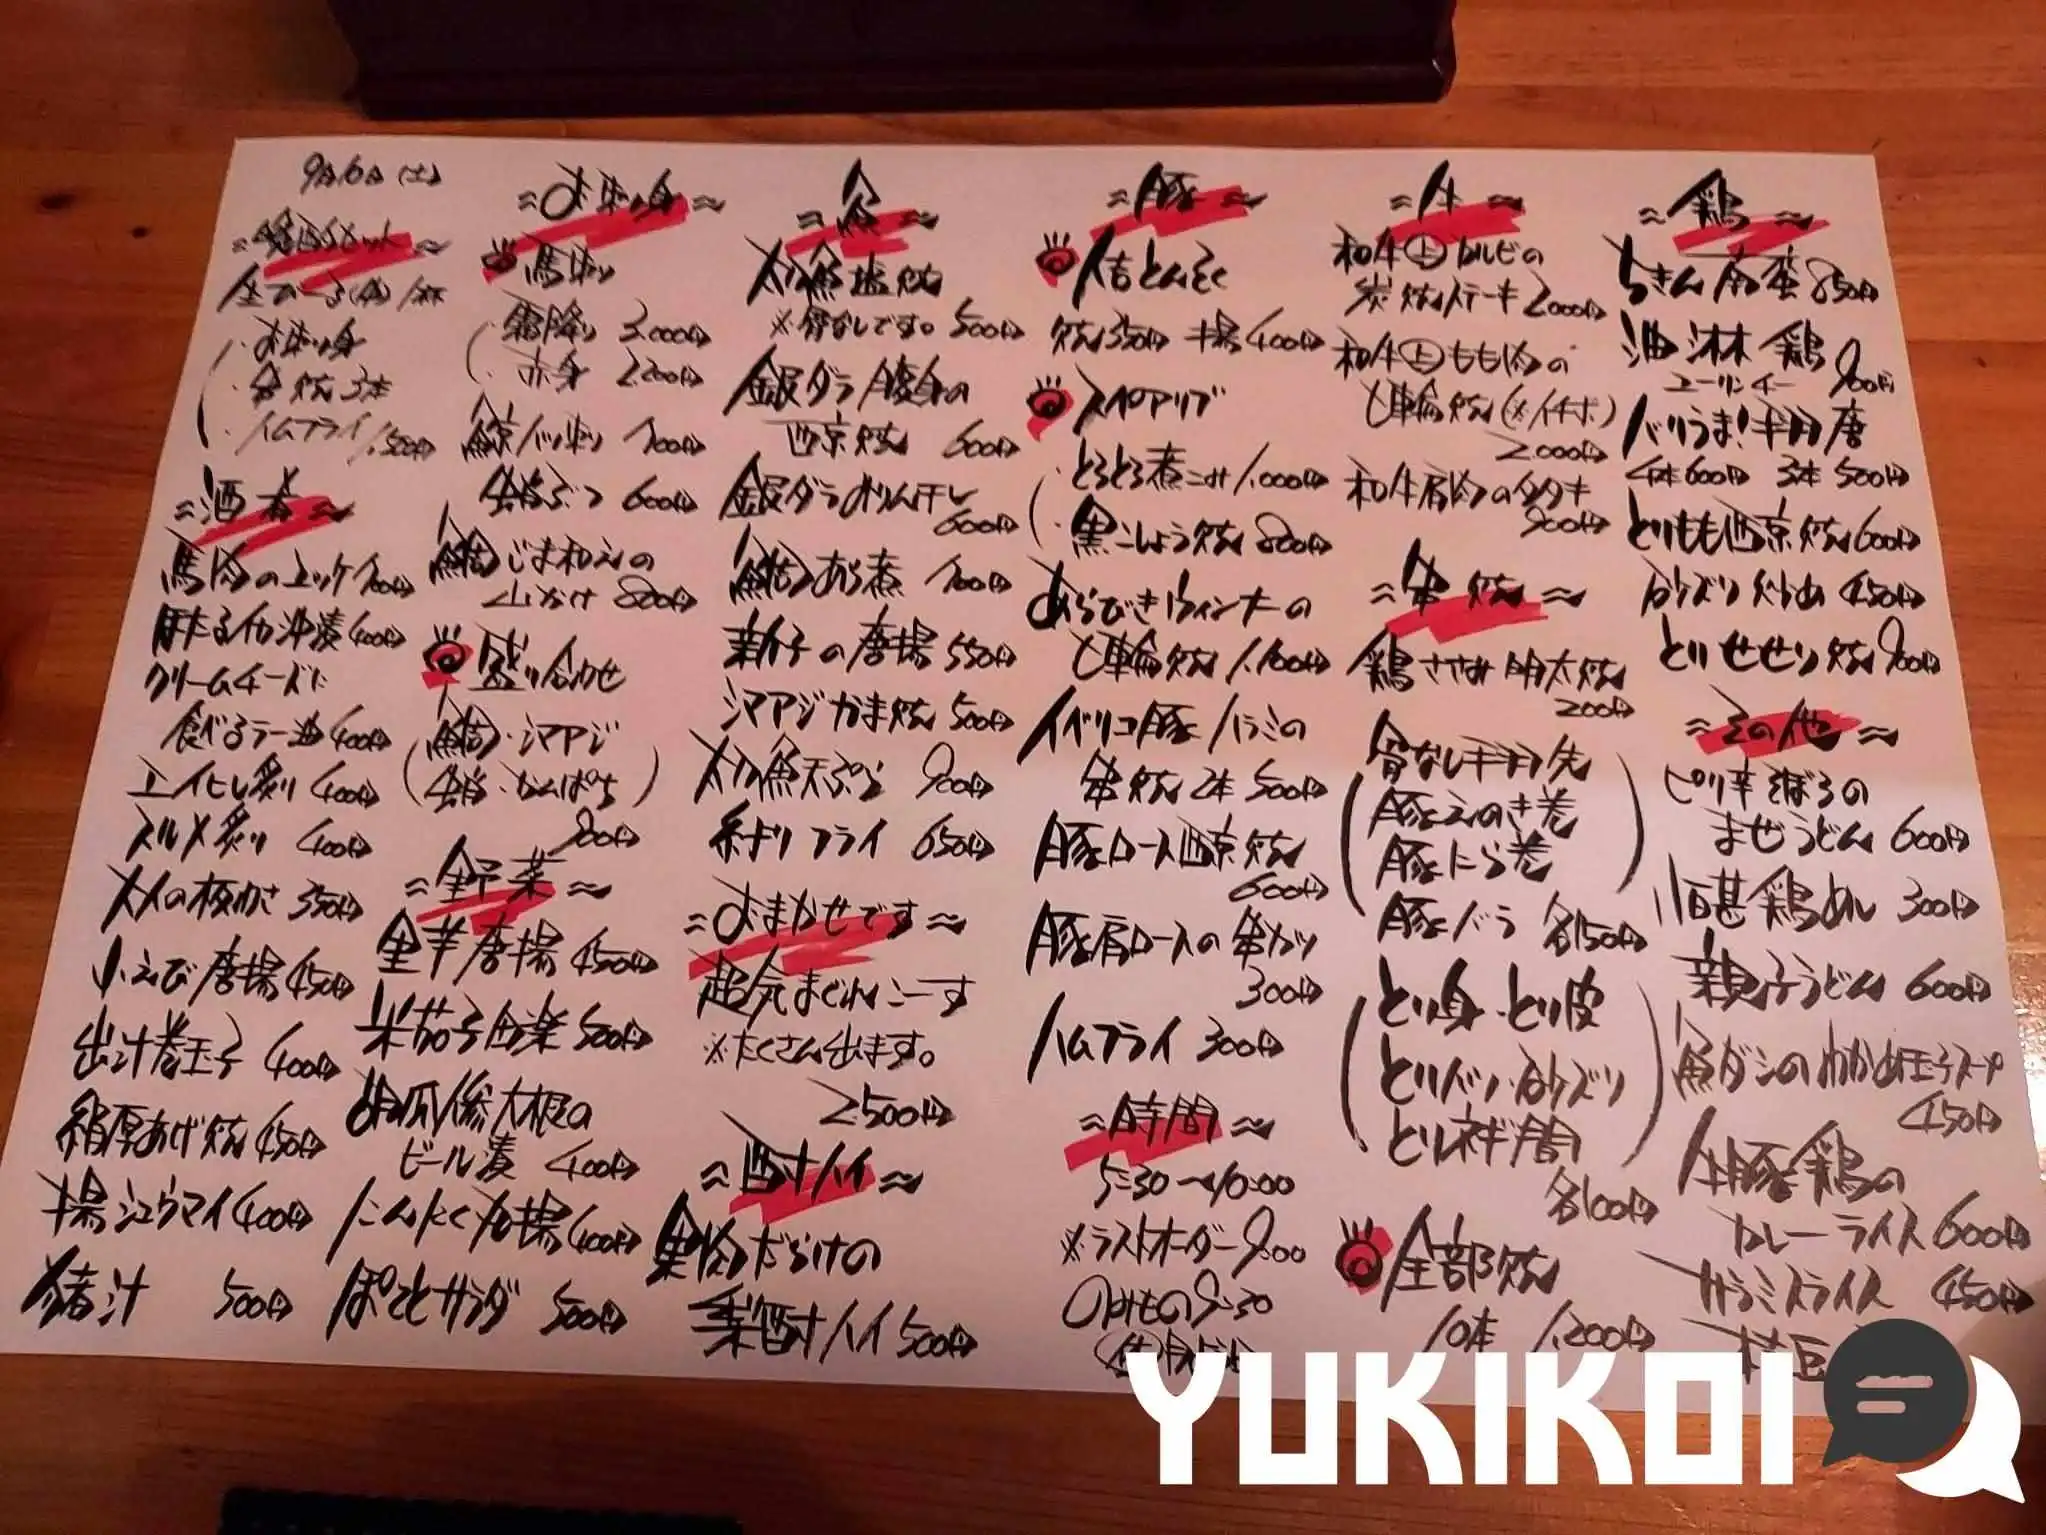 9月6日(土)
≈晩酌セット≈
生ビール(小)1杯
・お刺り身
・串焼3本
・ハムフライ 1,500円
≈酒肴≈
馬肉のユッケ 700円
ほたるイカ沖漬 400円
クリームチーズに
食べるラー油 400円
エイヒレ炙り 400円
スルメ炙り 400円
板わさ 350円
小えび唐揚 450円
出汁巻玉子 400円
厚あげ焼 450円
揚シュウマイ 400円
汁 500円
≈お刺り身≈
馬刺り
霜降り 3,000円
赤身 2,200円
鯨ベーコン
600円
ごま和えの
山かけ 800円
盛り合わせ
・シマアジ
・かんぱち
900円
≈野菜≈
里芋唐揚 450円
米茄子田楽 500円
胡瓜/大根の
ビール漬 400円
にんにく丸揚 400円
ぽてとサラダ 500円
≈魚≈
太刀魚塩焼
※骨なしです。 500円
銀ダラ腹身の
西京焼 600円
銀ダラみりん干し
600円
あら煮 700円
の唐揚 550円
シマアジかま焼 500円
太刀魚天ぷら 900円
フライ 650円
≈おまかせです≈
超気まぐれこーす
※たくさん出ます。
2,500円
≈酎ハイ≈
果肉だらけの
梨酎ハイ 500円
≈豚≈
人吉とんそく
焼350円 揚400円
スペアリブ
・とろとろ煮こみ 1,000円
・黒こしょう焼 800円
あらびきウィンナーの
七輪焼 1,100円
イベリコ豚ハラミの
串焼2本 500円
豚ロース西京焼
600円
豚肩ロースの串カツ
300円
ハムフライ 300円
≈時間≈
5:30〜10:00
※ラストオーダー9:00
のみもの9:30
≈牛≈
和牛(上)カルビの
炭焼ステーキ 2,000円
和牛(上)もも肉の
七輪焼(※イチボ)
2,000円
和牛肩肉のタタキ
900円
≈串焼≈
鶏ささみ明太焼
200円
骨なし手羽先
豚えのき巻
豚にら巻
豚バラ 各150円
とり身・とり皮
とりハツ・砂ズリ
とりネギ間
各100円
全部焼
10本 1,200円
≈鶏≈
ちきん南蛮 850円
油淋鶏
ユーリンチー 900円
バリうま!手羽唐
4本600円 3本500円
とりもも西京焼 600円
砂ズリ炒め 450円
とりせせり焼 900円
≈その他≈
ピリ辛そぼろの
まぜうどん 600円
鶏めし 300円
親子うどん 600円
魚ダシのわかめ玉子スープ
450円
牛豚鶏の
カレーライス 600円
ライス 450円
枝豆
YUKIKOI